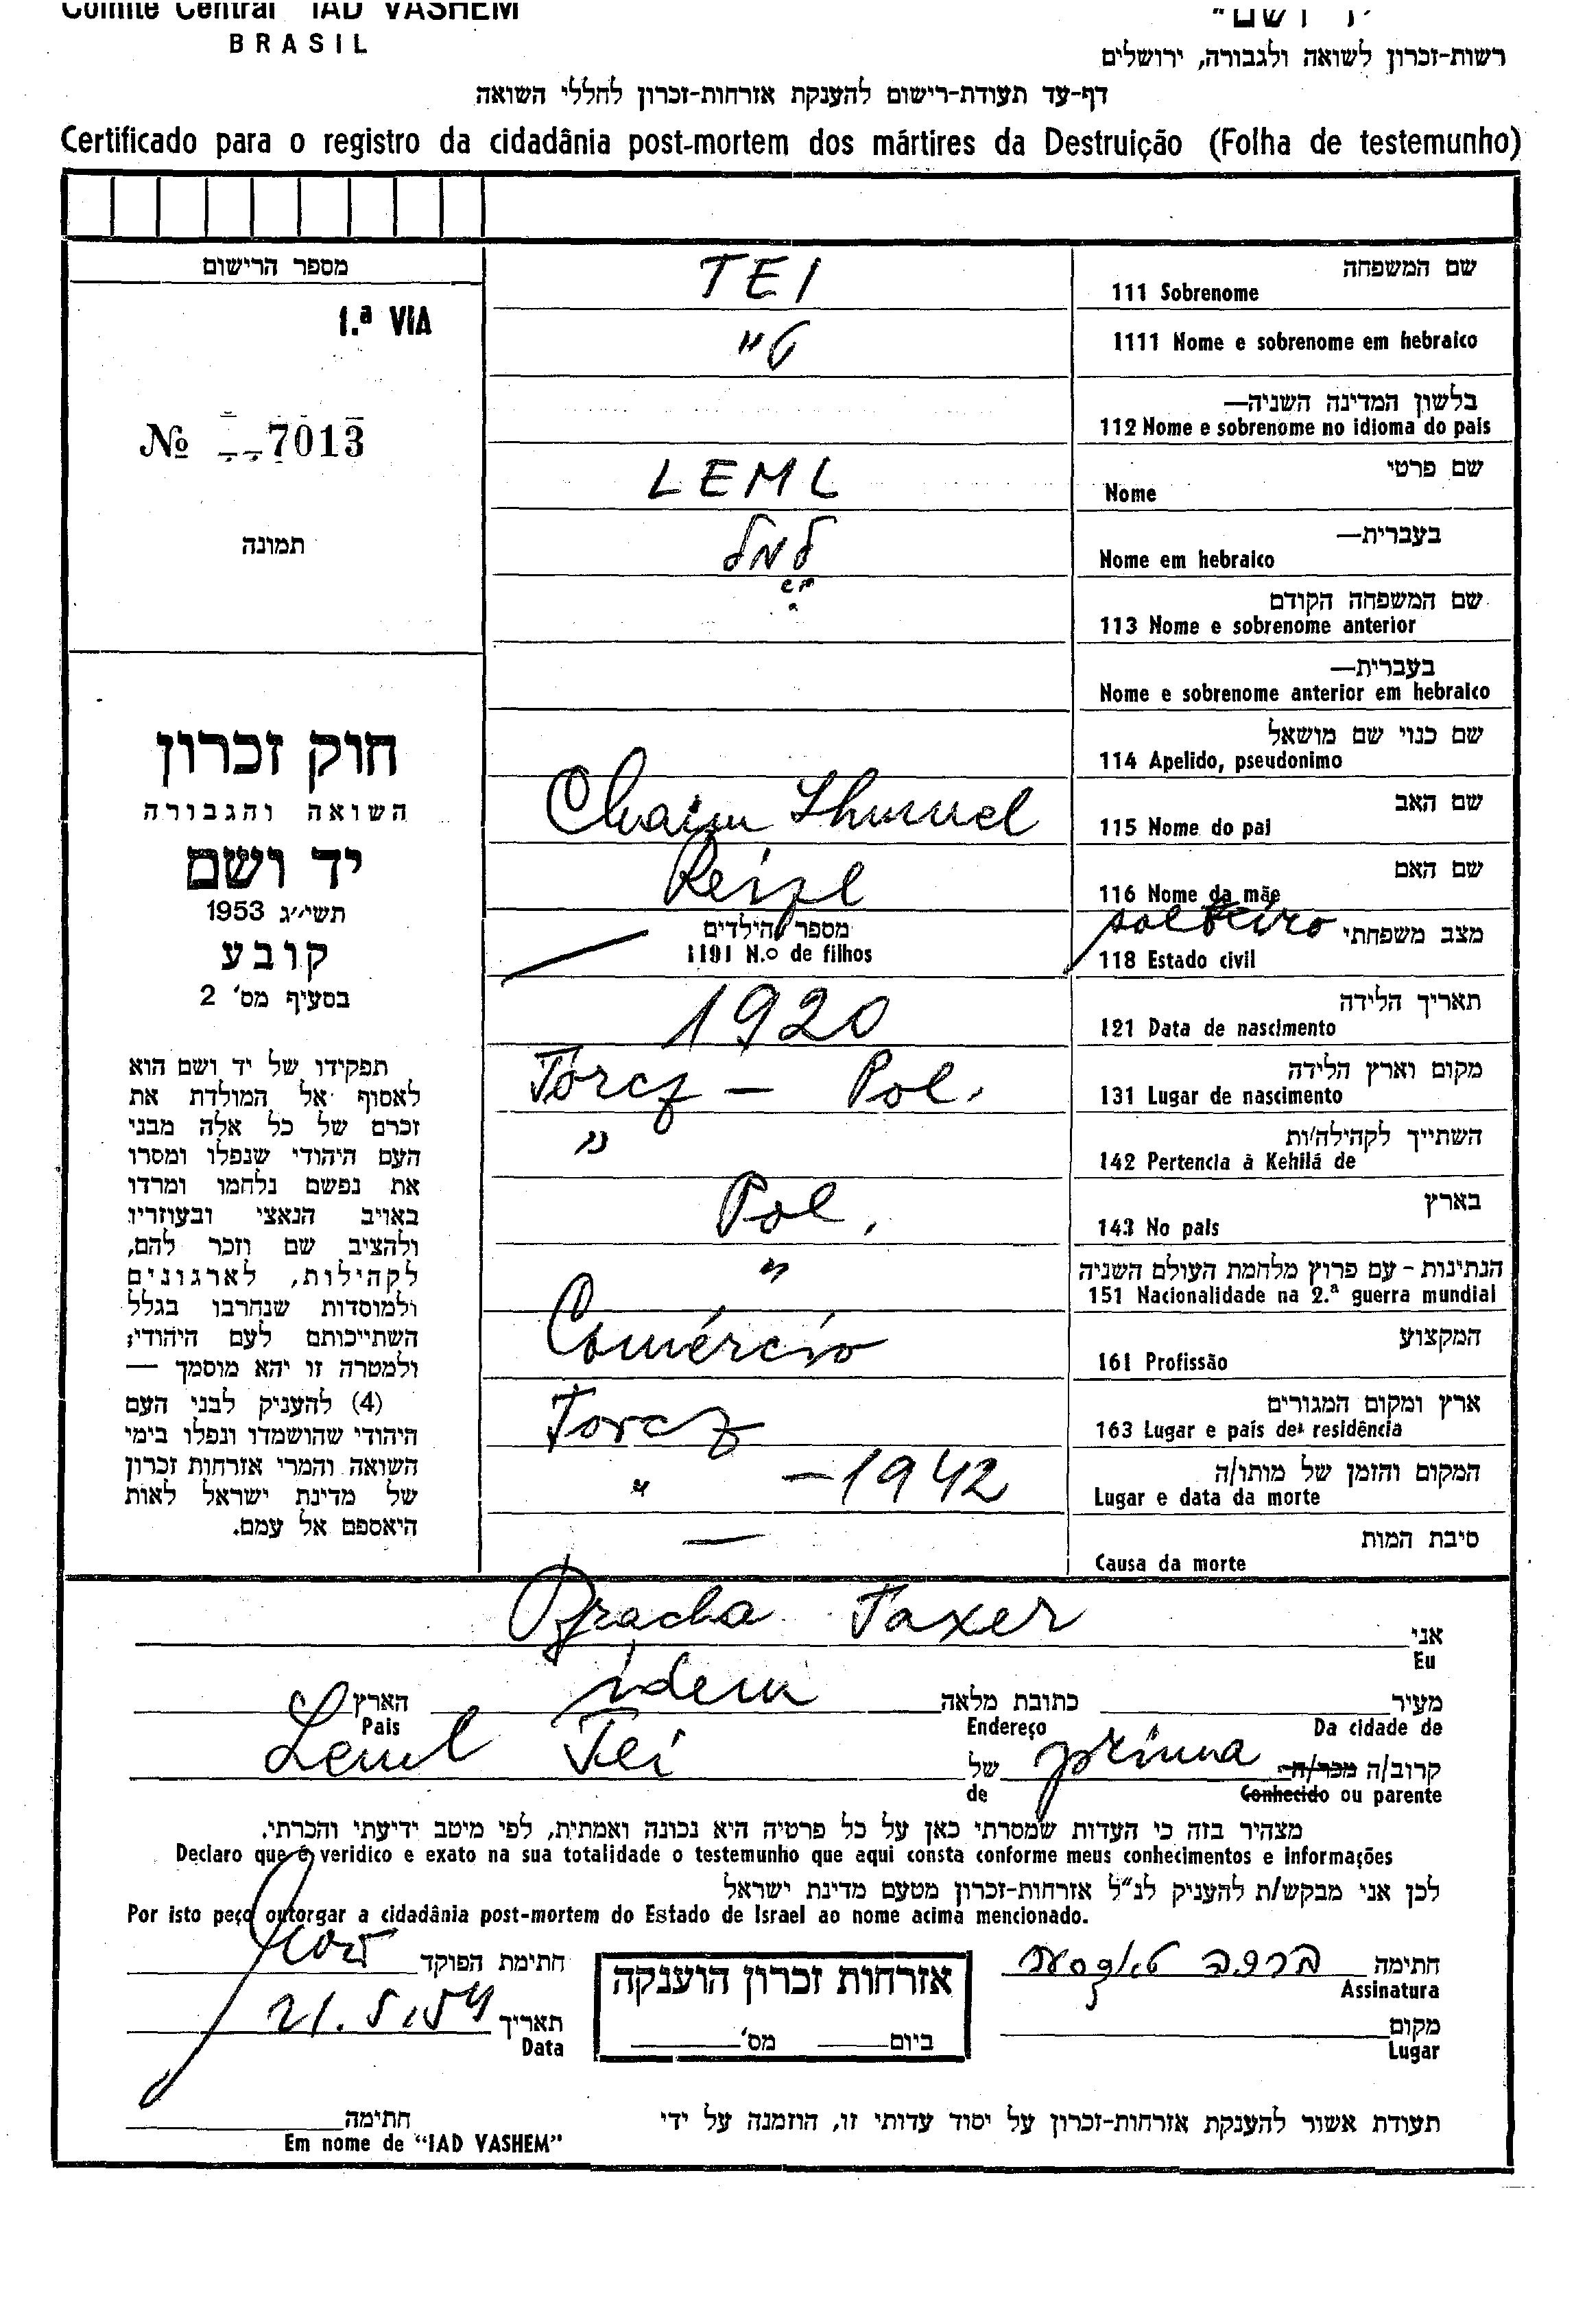 Comité Central IAD VASHEM
BRASIL
רשות-זכרון לשואה ולגבורה, ירושלים
דף-עד תעודת-רישום להענקת אזרחות-זכרון לחללי השואה
Certificado para o registro da cidadânia post-mortem dos mártires da Destruição (Folha de testemunho)
מספר הרישום
1.ª VIA
№ 7013
תמונה
חוק זכרון
השואה והגבורה
יד ושם
תשי״ג 1953
קובע
בסעיף מס' 2
תפקידו של יד ושם הוא
לאסוף אל המולדת את
זכרם של כל אלה מבני
העם היהודי שנפלו ומסרו
את נפשם נלחמו ומרדו
באויב הנאצי ובעוזריו
ולהציב שם וזכר להם,
לקהילות, לארגונים
ולמוסדות שנחרבו בגלל
השתייכותם לעם היהודי;
ולמטרה זו יהא מוסמך —
(4) להעניק לבני העם
היהודי שהושמדו ונפלו בימי
השואה והמרי אזרחות זכרון
של מדינת ישראל לאות
היאספם אל עמם.
שם המשפחה
111 Sobrenome TEI
1111 Nome e sobrenome em hebraico טײ
בלשון המדינה השניה—
112 Nome e sobrenome no idioma do pais
שם פרטי
Nome LEML
בעברית—
Nome em hebraico למל
שם המשפחה הקודם
113 Nome e sobrenome anterior
בעברית—
Nome e sobrenome anterior em hebraico
שם כנוי שם מושאל
114 Apelido, pseudonimo
שם האב
115 Nome do pai Chaim Shmuel
שם האם
116 Nome da mãe Reizl
מצב משפחתי
118 Estado civil solteiro
מספר הילדים
1191 N.o de filhos —
תאריך הלידה
121 Data de nascimento 1920
מקום וארץ הלידה
131 Lugar de nascimento Torcz - Pol.
השתייך לקהילה/ות
142 Pertencia à Kehilá de "
בארץ
143 No pais Pol.
הנתינות - עם פרוץ מלחמת העולם השניה
151 Nacionalidade na 2.ª guerra mundial "
המקצוע
161 Profissão Comércio
ארץ ומקום המגורים
163 Lugar e pais de residência Torcz
המקום והזמן של מותו/ה
Lugar e data da morte " - 1942
סיבת המות
Causa da morte —
אני
Eu Bracha Taxer
מעיר כתובת מלאה הארץ
Da cidade de Endereço idem Pais
קרוב/ה מכר/ה של
Conhecido ou parente prima de Leml Tei
מצהיר בזה כי העדות שמסרתי כאן על כל פרטיה היא נכונה ואמתית, לפי מיטב ידיעתי והכרתי.
Declaro que é veridico e exato na sua totalidade o testemunho que aqui consta conforme meus conhecimentos e informações
לכן אני מבקש/ת להעניק לנ״ל אזרחות-זכרון מטעם מדינת ישראל
Por isto peço outorgar a cidadânia post-mortem do Estado de Israel ao nome acima mencionado.
חתימה
Assinatura
מקום
Lugar
אזרחות זכרון הוענקה
ביום מס'
חתימת הפוקד
תאריך
Data
תעודת אשור להענקת אזרחות-זכרון על יסוד עדותי זו, הוזמנה על ידי
חתימה
Em nome de "IAD VASHEM"